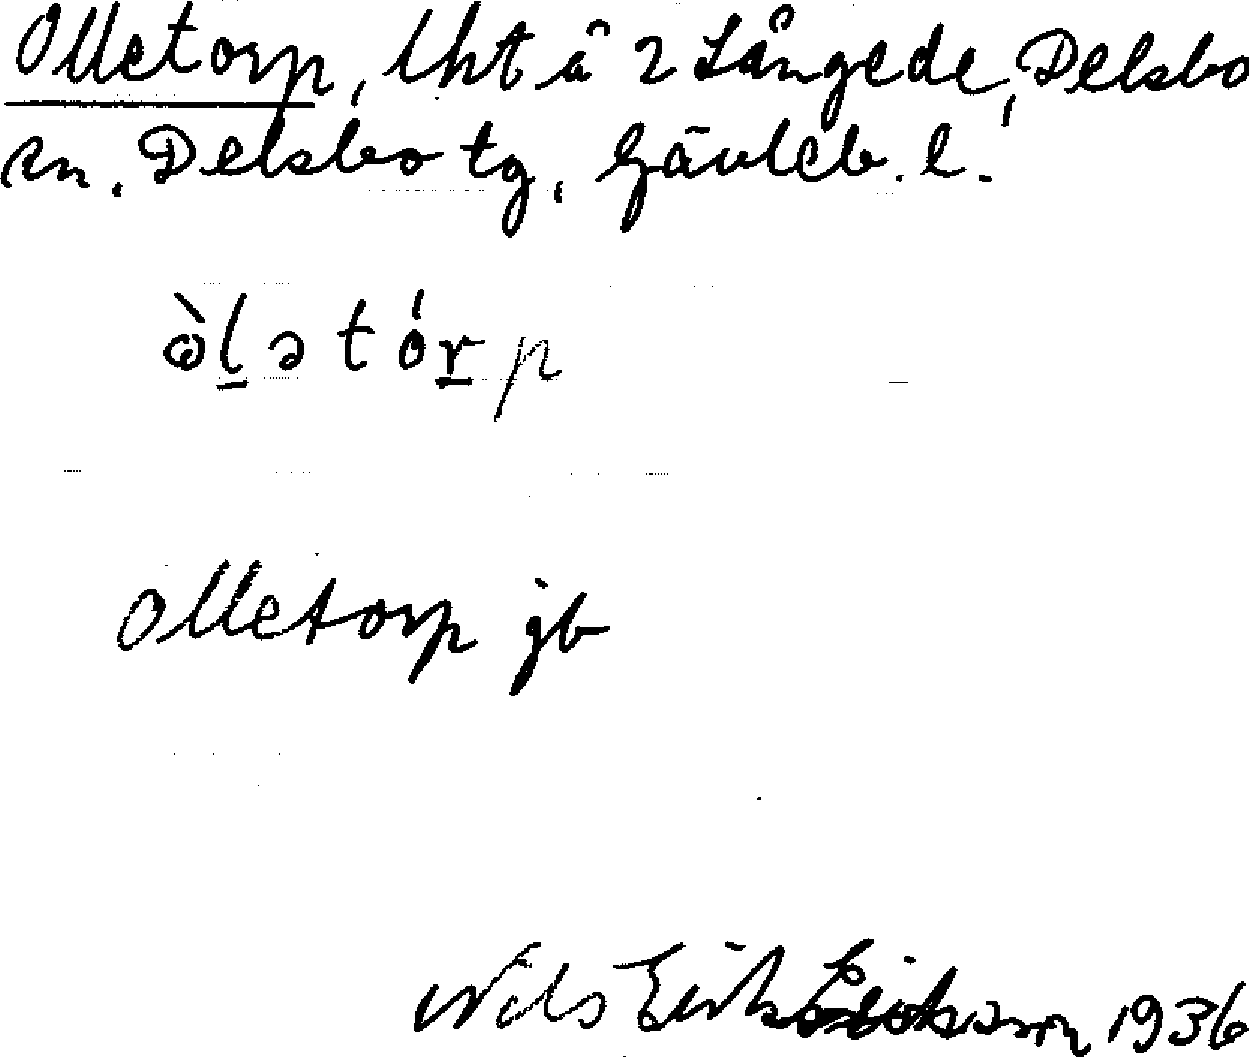 Olletorp, lht å 2 Långede, Delsbo
sn. Delsbo tg, Gävleb. l.
ò̠lətórp
Olletorp jb
Nils Erik Eriksson 1936